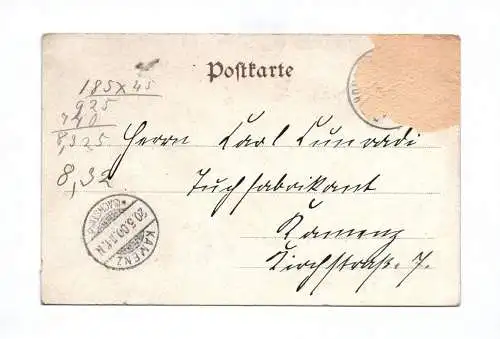 Postkarte
185 x 45
925
740
8,325
8,32
Herrn Carl Cunradi
Tuchfabrikant
Kamenz
Kirchstraße. 7.
KAMENZ
20.5.00.
(SACHSEN)